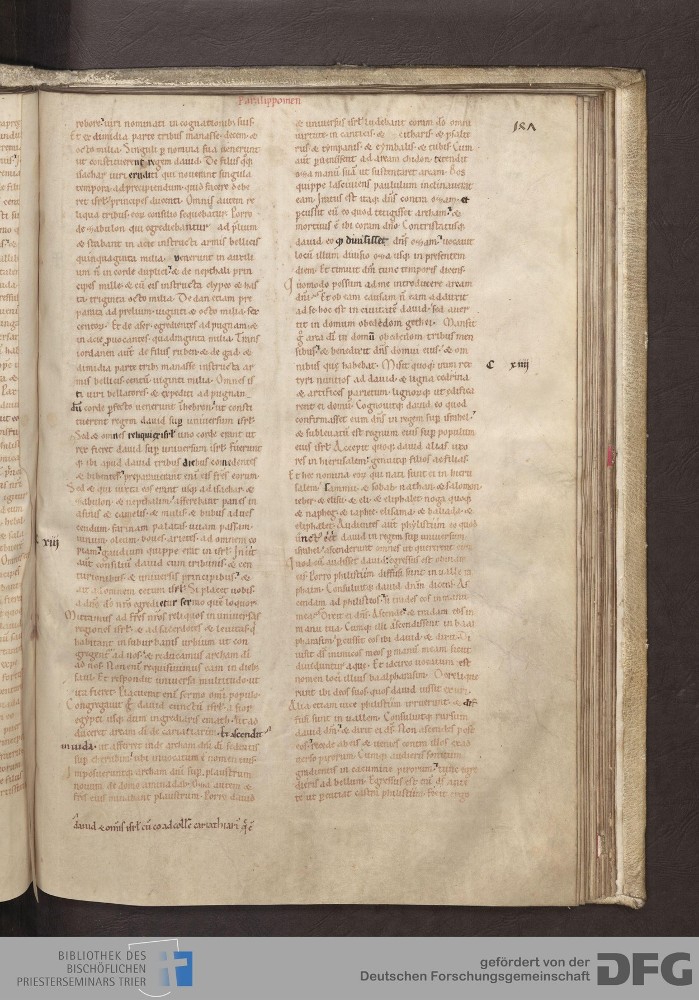 Paralippomen
robore. uiri nominati in cognationibus suis.
Et ex dimidia parte tribus manasse. decem &
octo milia. Singuli p nomina sua uenerunt
ut constituerent regem dauid. De filiis qq
isachar uiri eruditi qui nouerant singula
tempora. ad precipiendum quid facere debe
ret isrl. principes ducenti. Omnis autem re
liqua tribus. eorum consilio sequebatur. Porro
de zabulon qui egrediebantur ad plium
& stabant in acie instructi armis bellicis
quinquaginta milia. uenerunt in auxili
um n in corde duplici. & de nepthali prin
cipes mille. & cu eis instructa clypeo & has
ta. triginta octo milia. De dan etiam pre
parati ad prelium. uiginti & octo milia sex
centori. Et de aser. egredientes ad pugnam. &
in acie puocantes. quadraginta milia. Trans
iordanen aut de filiis ruben. & de gad. &
dimidia parte trib manasse instructi ar
mis bellicis. centu uiginti milia. Omnes is
ti uiri bellatores. & expediti ad pugnan
du corde pfecto uenerunt in hebron. ut consti
tuerent regem dauid sup uniuersum isrl.
Sed & omnes reliqui ex isrl uno corde erant ut
rex fieret dauid sup uniuersum isrl. Fuerunt
q ibi apud dauid tribus diebus comedentes
& bibentes. preparauerant eni eis frs eorum.
Sed & qui iuxta eos erant usq ad isachar. &
zabulon. & nepthalim. afferebant panes in
asinis & camelis. & mulis. & bubus ad ues
cendum. farinam. palatas. uuam passam.
uinum. oleum. boues. arietes. ad omnem co
piam. gaudium quippe erat in isrl. Iniit
aut consiliu dauid cum tribunis. & cen
turionibus. & uniuersis principibus. &
ait ad omnem cetum isrl. Si placet uobis.
a dno do nro egreditur sermo que loquor.
Mittamus ad frs nros reliquos in uniuersas
regiones isrl. & ad sacerdotes & leuitas q
habitant in suburbanis urbium ut con
gregent ad nos. & reducamus archam di
ad nos. Non eni requisiuimus eam in dieb
saul. Et respondit uniuersa multitudo. ut
ita fieret. Placuerat eni sermo omi populo.
Congregauit g dauid cunctu isrl. a sior
egypti usq dum ingrediaris emath. ut ad
duceret arcam di de cariathiarim. Et ascendit
in iuda. ut afferret inde archam dni di sedentis
sup cherubin. ubi inuocatum e nomen eius.
Imposueruntq archam dni sup plaustrum
nouum. de domo aminadab. Oza autem &
frs eius minabant plaustrum. Porro dauid
dauid & omis isrl cu eo ad colle cariathiari q e
xiii
& uniuersus isrl ludebant coram do omni
uirtute in canticis. & citharis. & psalte
riis & tympanis. & cymbalis. & tubis. Cum
aut puenissent ad aream chidon. tetendit
oza manu sua ut sustentaret arcam. Bos
quippe lasciuiens paululum inclinauerat
eam. Iratus est itaq dns contra ozam. et
pcussit eu eo quod tetigisset archam. &
mortuus e ibi coram dno. Contristatusq
dauid eo q diuisisset dns ozam. uocauit
locu illum diuisio oza usq in presentem
diem. Et timuit dm tunc temporis dicens.
Quomodo possum ad me introducere arcam
dni. Et ob eam causam n eam adduxit
ad se hoc est in ciuitate dauid. sed auer
tit in domum obededom gethei. Mansit
g arca di in domu obededom tribus men
sibus. & benedixit dns domui eius. & om
nibus que habebat. Misit quoq hiram rex
tyri nuntios ad dauid. & ligna cedrina
& artifices parietum. lignorumq ut edifica
rent ei domu. Cognouitq dauid eo quod
confirmasset eum dns in regem sup israhel.
& subleuatu est regnum eius sup populum
eius isrl. Accepit quoq dauid alias uxo
res in hierusalem. genuitq filios & filias.
Et hec nomina eoru qui nati sunt ei in hieru
salem. Samnua. & sobab. nathan & salomon.
iebar. & elisu. & eli. & eliphalet. noga quoq
& napheg. & iaphie. elisama. & baliada. &
eliphelet. Audientes aut phylistiim eo quod
unctus eet dauid in regem sup uniuersum
israhel. ascenderunt omnes ut quererent eum.
Quod cu audisset dauid. egressus est obuiam
eis. Porro philistiim diffusi sunt in ualle ra
phaim. Consuluitq dauid dnm dicens. As
cendam ad philisteos. si trades eos in manu
mea. Dixit ei dns. Ascende. & tradam eos in
manu tua. Cumq illi ascendissent in baal
pharasim. pcussit eos ibi dauid. & dixit. Di
uisit ds inimicos meos p manu meam sicut
diuiduntur aque. Et idcirco uocatum est
nomen loci illius baalpharasim. Dereliquer
runt ibi deos suos. quos dauid iussit exuri.
Alia etiam uice philistiim irruerunt. & dif
fusi sunt in uallem. Consuluitq rursum
dauid dm. & dixit ei ds. Non ascendes post
eos. recede ab eis. & uenies contra illos ex ad
uerso pirorum. Cumq audieris sonitum
gradientis in cacumine pirorum. tunc egre
dieris ad bellum. Egressus est eni ds ante
te ut pcutiat castra philistiim. Fecit ergo
187
C xiiii
BIBLIOTHEK DES
BISCHÖFLICHEN
PRIESTERSEMINARS TRIER
gefördert von der
Deutschen Forschungsgemeinschaft
DFG